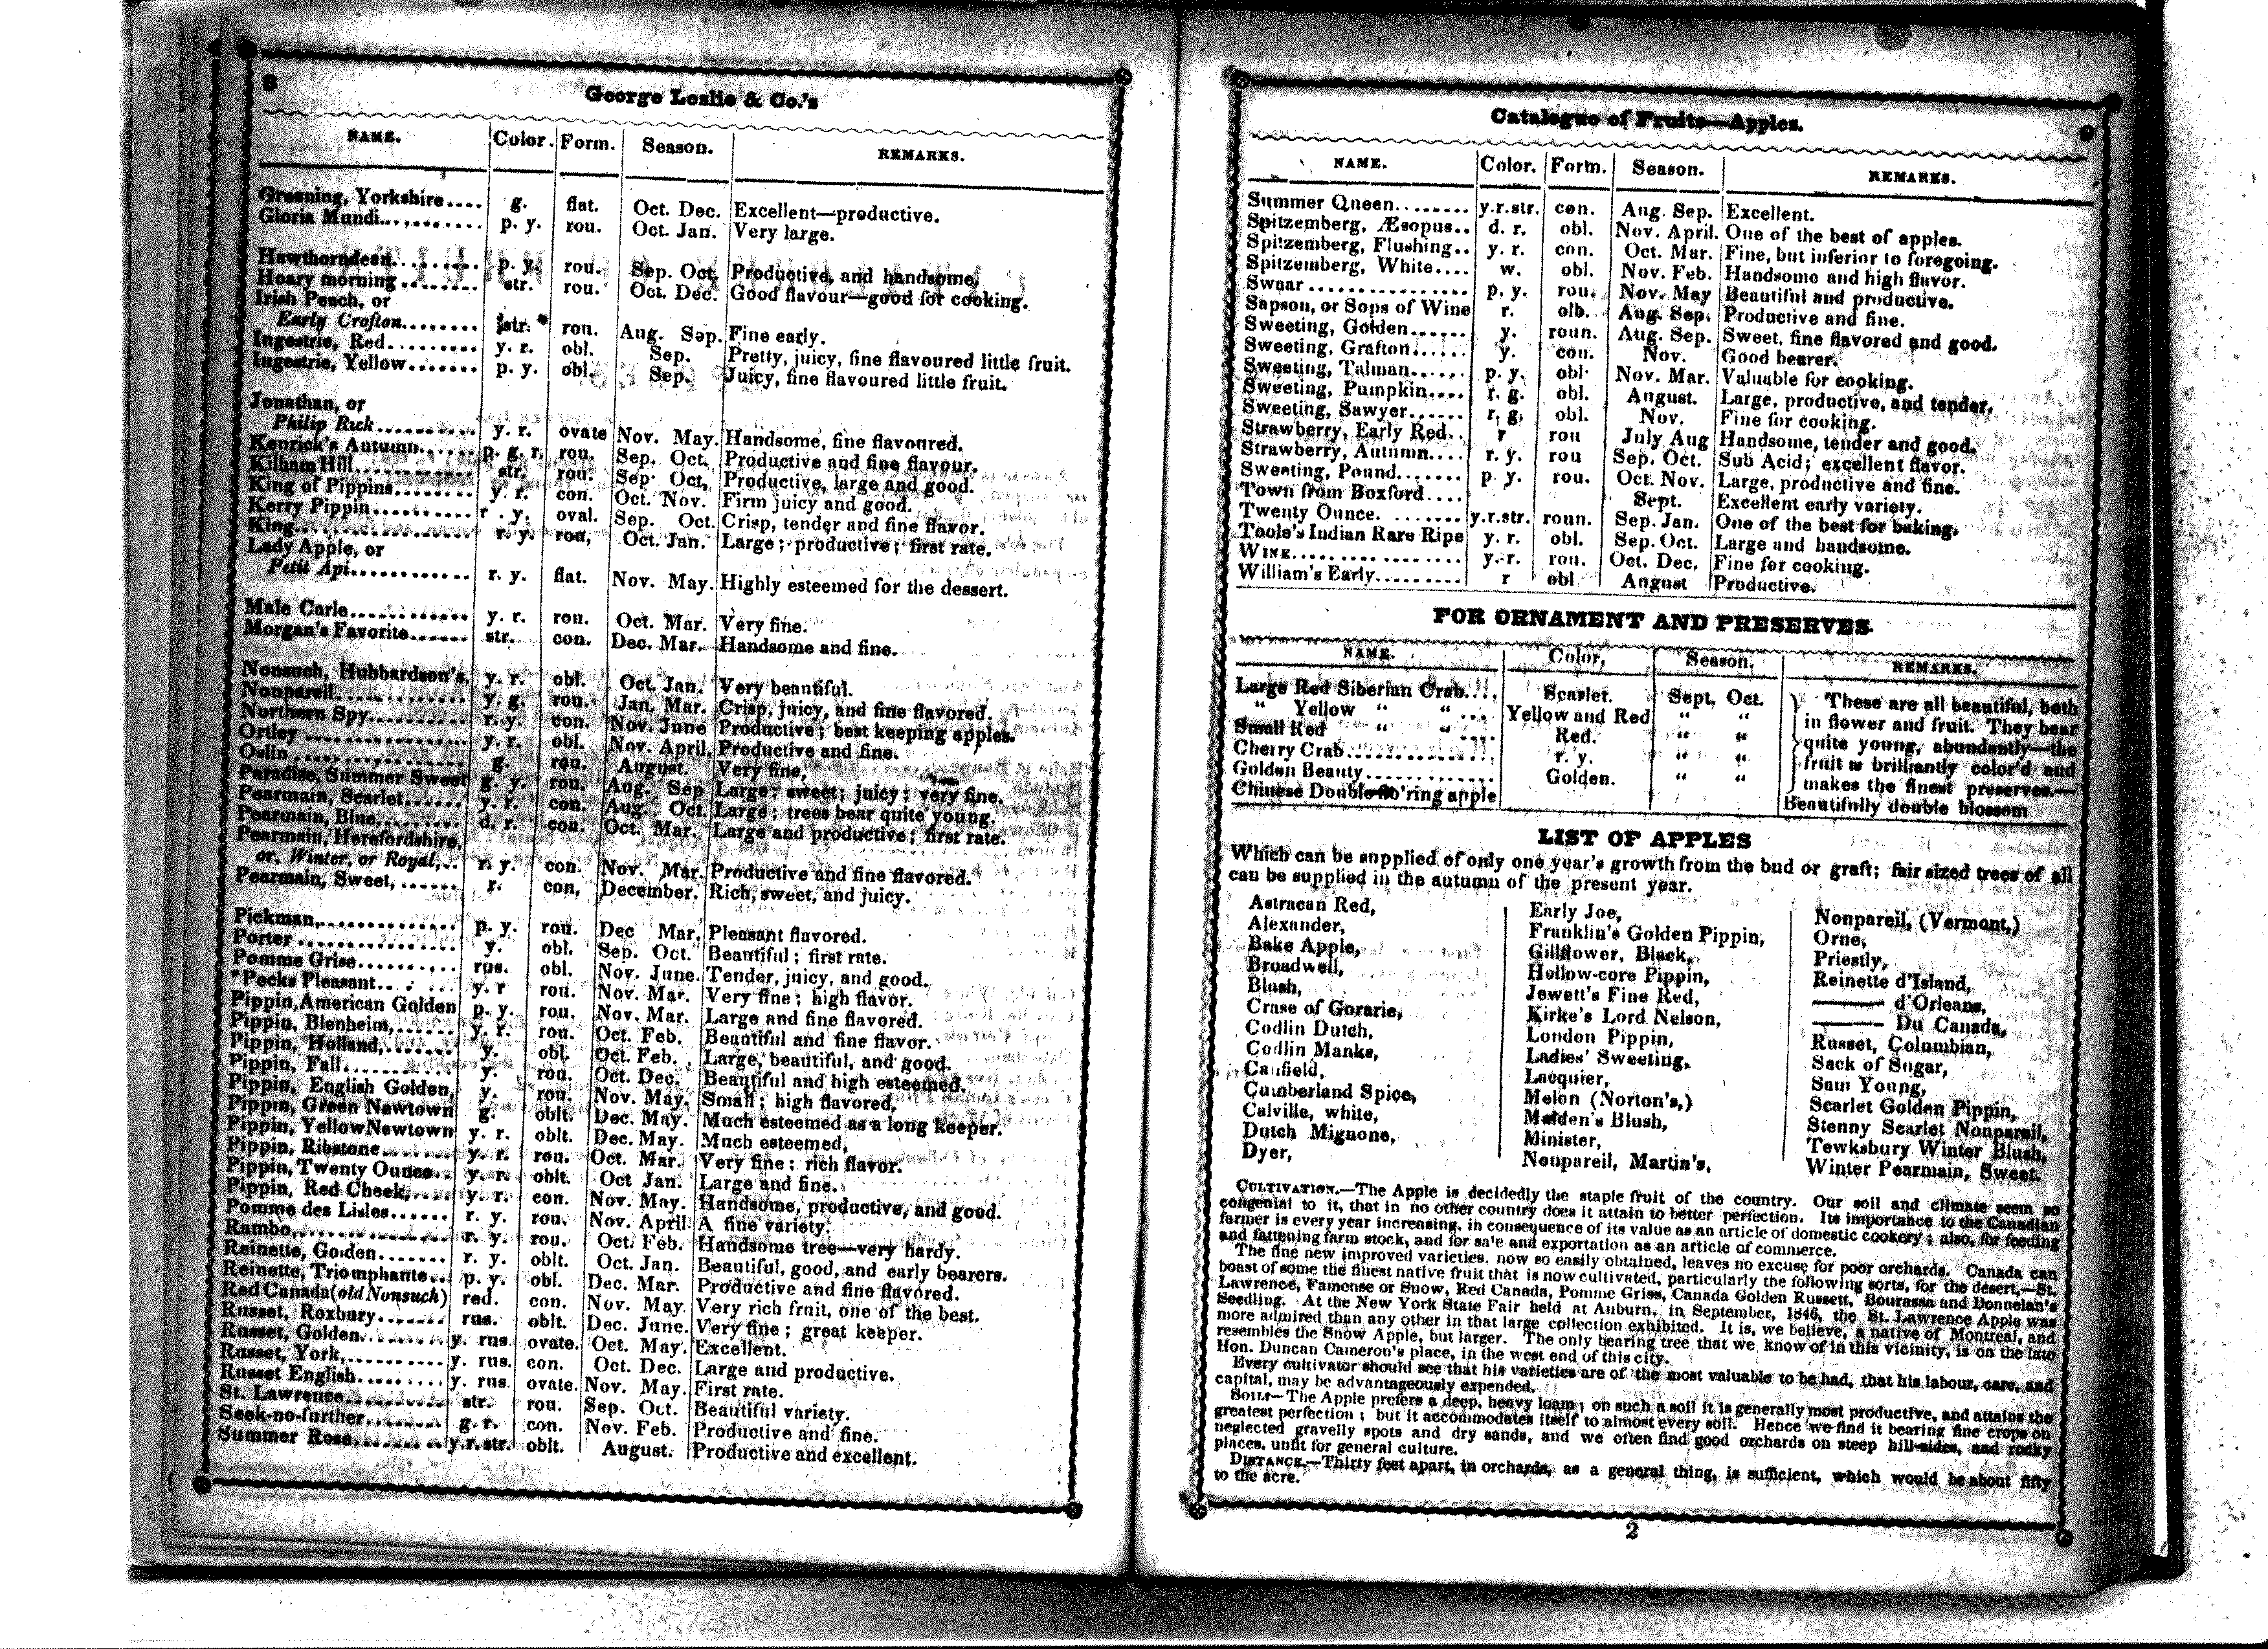 8
George Leslie & Co.'s
NAME. Color. Form. Season. REMARKS.
Greening, Yorkshire.... g. flat. Oct. Dec. Excellent—productive.
Gloria Mundi............ p. y. rou. Oct. Jan. Very large.
Hawthorndean......... p. y. rou. Sep. Oct. Productive, and handsome.
Hoary morning ........ str. rou. Oct. Dec. Good flavour—good for cooking.
Irish Peach, or
Early Crofton........ str. rou. Aug. Sep. Fine early.
Ingestrie, Red......... y. r. obl. Sep. Pretty, juicy, fine flavoured little fruit.
Ingestrie, Yellow....... p. y. obl. Sep. Juicy, fine flavoured little fruit.
Jonathan, or
Philip Rick.......... y. r. ovate Nov. May. Handsome, fine flavoured.
Kenrick's Autumn...... p. g. r. rou. Sep. Oct. Productive and fine flavour.
Kilham Hill............ str. rou. Sep. Oct. Productive, large and good.
King of Pippins........ y. r. con. Oct. Nov. Firm juicy and good.
Kerry Pippin.......... r. y. oval. Sep. Oct. Crisp, tender and fine flavor.
King.................. r. y. rou, Oct. Jan. Large; productive; first rate.
Lady Apple, or
Petit Api............ r. y. flat. Nov. May. Highly esteemed for the dessert.
Male Carle............ y. r. rou. Oct. Mar. Very fine.
Morgan's Favorite...... str. con. Dec. Mar. Handsome and fine.
Nonsuch, Hubbardson's, y. r. obl. Oct. Jan. Very beautiful.
Nonpareil............. y. g. rou. Jan. Mar. Crisp, juicy, and fine flavored.
Northern Spy.......... r. y. con. Nov. June Productive; best keeping apples.
Ortley ................ y. r. obl. Nov. April. Productive and fine.
Oslin ................. g. rou. August. Very fine,
Paradise, Summer Sweet g. y. rou. Aug. Sep Large; sweet; juicy; very fine.
Pearmain, Scarlet...... y. r. con. Aug. Oct. Large; trees bear quite young.
Pearmain, Blue,........ d. r. con. Oct. Mar. Large and productive; first rate.
Pearmain, Herefordshire,
or, Winter, or Royal,.. r. y. con. Nov. Mar. Productive and fine flavored.
Pearmain, Sweet, ...... r. con, December. Rich, sweet, and juicy.
Pickman,............. p. y. rou. Dec Mar. Pleasant flavored.
Porter ................ y. obl. Sep. Oct. Beautiful; first rate.
Pomme Grise.......... rus. obl. Nov. June. Tender, juicy, and good.
*Pecks Pleasant.. . ... y. r rou. Nov. Mar. Very fine; high flavor.
Pippin, American Golden p. y. rou. Nov. Mar. Large and fine flavored.
Pippin, Blenheim,...... y. r. rou. Oct. Feb. Beautiful and fine flavor.
Pippin, Holland,....... y. obl. Oct. Feb. Large, beautiful, and good.
Pippin, Fall........... y. rou. Oct. Dec. Beautiful and high esteemed.
Pippin, English Golden, y. rou. Nov. May. Small; high flavored.
Pippin, Green Newtown g. oblt. Dec. May. Much esteemed as a long keeper.
Pippin, Yellow Newtown y. r. oblt. Dec. May. Much esteemed.
Pippin, Ribstone....... y. r. rou. Oct. Mar. Very fine; rich flavor.
Pippin, Twenty Ounce.. y. r. oblt. Oct Jan. Large and fine.
Pippin, Red Cheek,..... y. r. con. Nov. May. Handsome, productive, and good.
Pomme des Lisles...... r. y. rou. Nov. April. A fine variety.
Rambo,............... r. y. rou. Oct. Feb. Handsome tree—very hardy.
Reinette, Golden....... r. y. oblt. Oct. Jan. Beautiful, good, and early bearers.
Reinette, Triomphante.. p. y. obl. Dec. Mar. Productive and fine flavored.
Red Canada (old Nonsuch) red. con. Nov. May. Very rich fruit, one of the best.
Russet, Roxbury....... rus. oblt. Dec. June. Very fine; great keeper.
Russet, Golden......... y. rus. ovate. Oct. May. Excellent.
Russet, York,.......... y. rus. con. Oct. Dec. Large and productive.
Russet English......... y. rus. ovate. Nov. May. First rate.
St. Lawrence.......... str. rou. Sep. Oct. Beautiful variety.
Seek-no-further........ g. r. con. Nov. Feb. Productive and fine.
Summer Rose......... y.r. str. oblt. August. Productive and excellent.
Catalogue of Fruits—Apples. 9
NAME. Color. Form. Season. REMARKS.
Summer Queen........ y.r.str. con. Aug. Sep. Excellent.
Spitzemberg, Æsopus.. d. r. obl. Nov. April. One of the best of apples.
Spitzemberg, Flushing.. y. r. con. Oct. Mar. Fine, but inferior to foregoing.
Spitzemberg, White.... w. obl. Nov. Feb. Handsome and high flavor.
Swaar ............... p. y. rou. Nov. May Beautiful and productive.
Sapson, or Sops of Wine r. olb. Aug. Sep. Productive and fine.
Sweeting, Golden...... y. roun. Aug. Sep. Sweet, fine flavored and good.
Sweeting, Grafton...... y. con. Nov. Good bearer.
Sweeting, Talman...... p. y. obl. Nov. Mar. Valuable for cooking.
Sweeting, Pumpkin.... r. g. obl. August. Large, productive, and tender.
Sweeting, Sawyer...... r. g. obl. Nov. Fine for cooking.
Strawberry, Early Red.. r rou July Aug Handsome, tender and good.
Strawberry, Autumn.... r. y. rou Sep. Oct. Sub Acid; excellent flavor.
Sweeting, Pound....... p y. rou. Oct. Nov. Large, productive and fine.
Town from Boxford.... Sept. Excellent early variety.
Twenty Ounce. ....... y.r.str. roun. Sep. Jan. One of the best for baking.
Toole's Indian Rare Ripe y. r. obl. Sep. Oct. Large and handsome.
WINE............... y. r. rou. Oct. Dec. Fine for cooking.
William's Early......... r obl August Productive.
FOR ORNAMENT AND PRESERVES.
NAME. Color. Season. REMARKS.
Large Red Siberian Crab.... Scarlet. Sept. Oct. These are all beautiful, both
" Yellow " " ... Yellow and Red " " in flower and fruit. They bear
Small Red " " .... Red. " " quite young, abundantly—the
Cherry Crab............... r. y. " " fruit is brilliantly color'd and
Golden Beauty............. Golden. " " makes the finest preserves.—
Chinese Double flo'ring apple Beautifully double blossom
LIST OF APPLES
Which can be supplied of only one year's growth from the bud or graft; fair sized trees of all
can be supplied in the autumn of the present year.
Astracan Red,
Alexander,
Bake Apple,
Broadwell,
Blush,
Crase of Gorarie,
Codlin Dutch,
Codlin Manks,
Canfield,
Cumberland Spice,
Calville, white,
Dutch Mignone,
Dyer,
Early Joe,
Franklin's Golden Pippin,
Gillflower, Black,
Hollow-core Pippin,
Jewett's Fine Red,
Kirke's Lord Nelson,
London Pippin,
Ladies' Sweeting,
Lacquier,
Melon (Norton's,)
Maiden's Blush,
Minister,
Nonpareil, Martin's,
Nonpareil, (Vermont,)
Orne,
Priestly,
Reinette d'Island,
—— d'Orleans,
—— Du Canada,
Russet, Columbian,
Sack of Sugar,
Sam Young,
Scarlet Golden Pippin,
Stenny Scarlet Nonpareil,
Tewksbury Winter Blush,
Winter Pearmain, Sweet.
CULTIVATION.—The Apple is decidedly the staple fruit of the country. Our soil and climate seem so
congenial to it, that in no other country does it attain to better perfection. Its importance to the Canadian
farmer is every year increasing, in consequence of its value as an article of domestic cookery; also, for feeding
and fattening farm stock, and for sale and exportation as an article of commerce.
The fine new improved varieties, now so easily obtained, leaves no excuse for poor orchards. Canada can
boast of some the finest native fruit that is now cultivated, particularly the following sorts, for the desert,—St.
Lawrence, Famense or Snow, Red Canada, Pomme Griss, Canada Golden Russett, Bourassa and Donnelan's
Seedling. At the New York State Fair held at Auburn, in September, 1846, the St. Lawrence Apple was
more admired than any other in that large collection exhibited. It is, we believe, a native of Montreal, and
resembles the Snow Apple, but larger. The only bearing tree that we know of in this vicinity, is on the late
Hon. Duncan Cameron's place, in the west end of this city.
Every cultivator should see that his varieties are of the most valuable to be had, that his labour, care, and
capital, may be advantageously expended.
SOILS—The Apple prefers a deep, heavy loam; on such a soil it is generally most productive, and attains the
greatest perfection; but it accommodates itself to almost every soil. Hence we find it bearing fine crops on
neglected gravelly spots and dry sands, and we often find good orchards on steep hill-sides, and rocky
places, unfit for general culture.
DISTANCE.—Thirty feet apart, in orchards, as a general thing, is sufficient, which would be about fifty
to the acre.
2